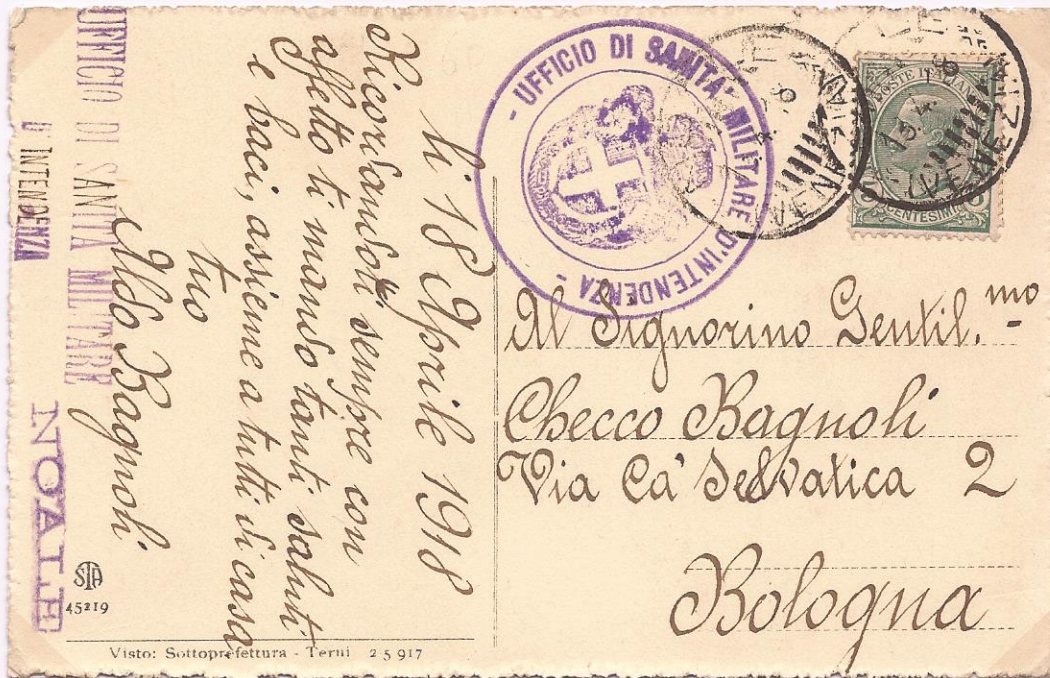 UFFICIO DI SANITA MILITARE
D'INTENDENZA
NOALE
li 18 Aprile 1918
Ricordandoti sempre con
affetto ti mando tanti saluti
e baci, assieme a tutti di casa
tuo
Aldo Bagnoli
STA
45219
Visto: Sottoprefettura - Terni 25917
- UFFICIO DI SANITA' MILITARE D'INTENDENZA -
POSTE ITALIANE
CENTESIMI
Al Signorino Gentil.mo
Checco Bagnoli
Via Ca' Selvatica 2
Bologna